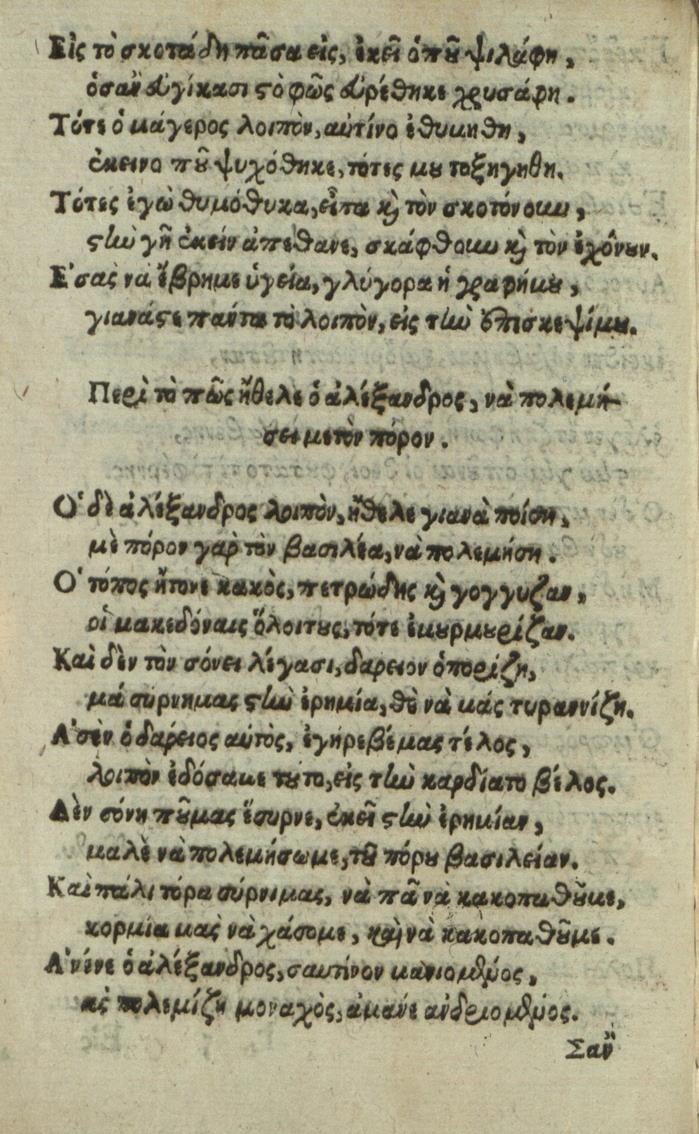 Εἰς τὸ σκοτάδη πᾶσα εἰς, ἐκεῖ ὁποῦ ψιλάφη,
ὁσαν εὐγίκασι στὸ φῶς εὑρέθηκε χρυσάφη.
Τότε ὁ μάγερος λοιπὸν, αὐτίνο ἐθυμήθη,
ἐκεινο ποῦ ψυχόθηκε, τότες μου τοξηγήθη.
Τότες ἐγὼ θυμόθηκα, εἶπα καὶ τὸν σκοτόνουν,
στὴν γῆ ἐκείν ἀπέθανε, σκάφθουν καὶ τὸν ἐχόνουν.
Ε'σας νὰ ἔβρημε ὑγεία, γλύγορα ἡ γραφήμου,
γιανάστε παντα τὸ λοιπὸν, εἰς τὴν ἐπισκεψίμου.
Περὶ τὸ πῶς ἤθελε ὁ ἀλέξανδρος, νὰ πολεμή-
σει μετὸν πόρον.
Ο' δὲ ἀλέξανδρος λοιπὸν, ἤθελε γιανὰ ποίση,
μὲ πόρον γαρ τὸν βασιλέα, νὰ πολεμήση.
Ο' τόπος ἤτονε κακὸς, πετρώδης καὶ γογγυζαν,
οἱ μακεδόναις ὅλοιτους, τότε ἐμουρμουρίζαν.
Καὶ δὲν τὸν σόνει λέγασι, δαρειον ὁπορίζη,
μά σύρνημας στὴν ἐρημία, θὲ νὰ μάς τυραννίζη.
Α'σὲν ὁ δαρειος αὐτὸς, ἐγήρεβέ μας τέλος,
λοιπὸν ἐδόσαμε τουτο, εἰς τὴν καρδίατο βέλος.
Δὲν σόνη ποῦμας ἔσυρνε, ἐκεῖ στὴν ἐρημίαν,
μαλὲ νὰ πολεμήσωμε, τοῦ πόρου βασιλείαν.
Καὶ πάλι τόρα σύρνιμας, νὰ πᾶ νὰ κακοπαθοῦμε,
κορμία μας νὰ χάσομε, καὶ νὰ κακοπαθοῦμε.
Α'νένε ὁ ἀλέξανδρος, σαυτίνον μανιομένος,
ας πολεμίζη μοναχὸς, ἀμανε ανδριομένος.
Σαν